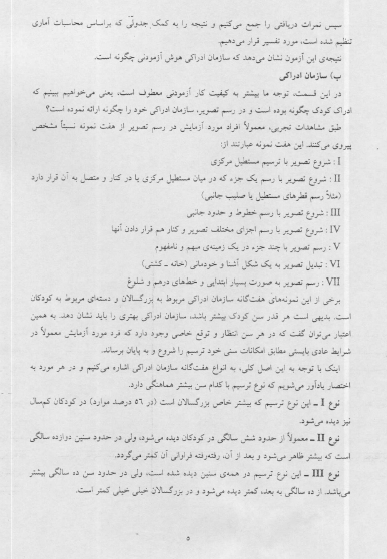 سپس نمرات دریافتی را جمع می‌کنیم و نتیجه را به کمک جدولی که براساس محاسبات آماری
تنظیم شده است، مورد تفسیر قرار می‌دهیم.
نتیجه‌ی این آزمون نشان می‌دهد که سازمان ادراکی هوش آزمودنی چگونه است.
ب) سازمان ادراکی
در این قسمت، توجه ما بیشتر به کیفیت کار آزمودنی معطوف است، یعنی می‌خواهیم ببینیم که
ادراک کودک چگونه بوده است و در رسم تصویر، سازمان ادراکی خود را چگونه ارائه نموده است؟
طبق مشاهدات تجربی، معمولاً افراد مورد آزمایش در رسم تصویر از هفت نمونه نسبتاً مشخص
پیروی می‌کنند. این هفت نمونه عبارتند از:
I : شروع تصویر با ترسیم مستطیل مرکزی
II : شروع تصویر با رسم یک جزء که در میان مستطیل مرکزی یا در کنار و متصل به آن قرار دارد
(مثلاً رسم قطرهای مستطیل یا صلیب جانبی)
III : شروع تصویر با رسم خطوط و حدود جانبی
IV : شروع تصویر با رسم اجزای مختلف تصویر و کنار هم قرار دادن آنها
V : رسم تصویر با چند جزء در یک زمینه‌ی مبهم و نامفهوم
VI : تبدیل تصویر به یک شکل آشنا و خودمانی (خانه ــ کشتی)
VII : رسم تصویر به صورت بسیار ابتدایی و خط‌های درهم و شلوغ
برخی از این نمونه‌های هفت‌گانه سازمان ادراکی مربوط به بزرگسالان و دسته‌ای مربوط به کودکان
است. بدیهی است هر قدر سن کودک بیشتر باشد، سازمان ادراکی بهتری را باید نشان دهد. به همین
اعتبار می‌توان گفت که در هر سن انتظار و توقع خاصی وجود دارد که فرد مورد آزمایش معمولاً در
شرایط عادی بایستی مطابق امکانات سنی خود ترسیم را شروع و به پایان برساند.
اینک با توجه به این اصل کلی، به انواع هفت‌گانه سازمان ادراکی اشاره می‌کنیم و در هر مورد به
اختصار یادآور می‌شویم که نوع ترسیم با کدام سن بیشتر هماهنگی دارد.
نوع I ــ این نوع ترسیم که بیشتر خاص بزرگسالان است (در ۵۶ درصد موارد) در کودکان کم‌سال
نیز دیده می‌شود.
نوع II ــ معمولاً از حدود شش سالگی در کودکان دیده می‌شود، ولی در حدود سنین دوازده سالگی
است که بیشتر ظاهر می‌شود و بعد از آن، رفته‌رفته فراوانی آن کمتر می‌گردد.
نوع III ــ این نوع ترسیم در همه‌ی سنین دیده شده است، ولی در حدود سن ده سالگی بیشتر
می‌باشد. از ده سالگی به بعد، کمتر دیده می‌شود و در بزرگسالان خیلی خیلی کمتر است.
۵